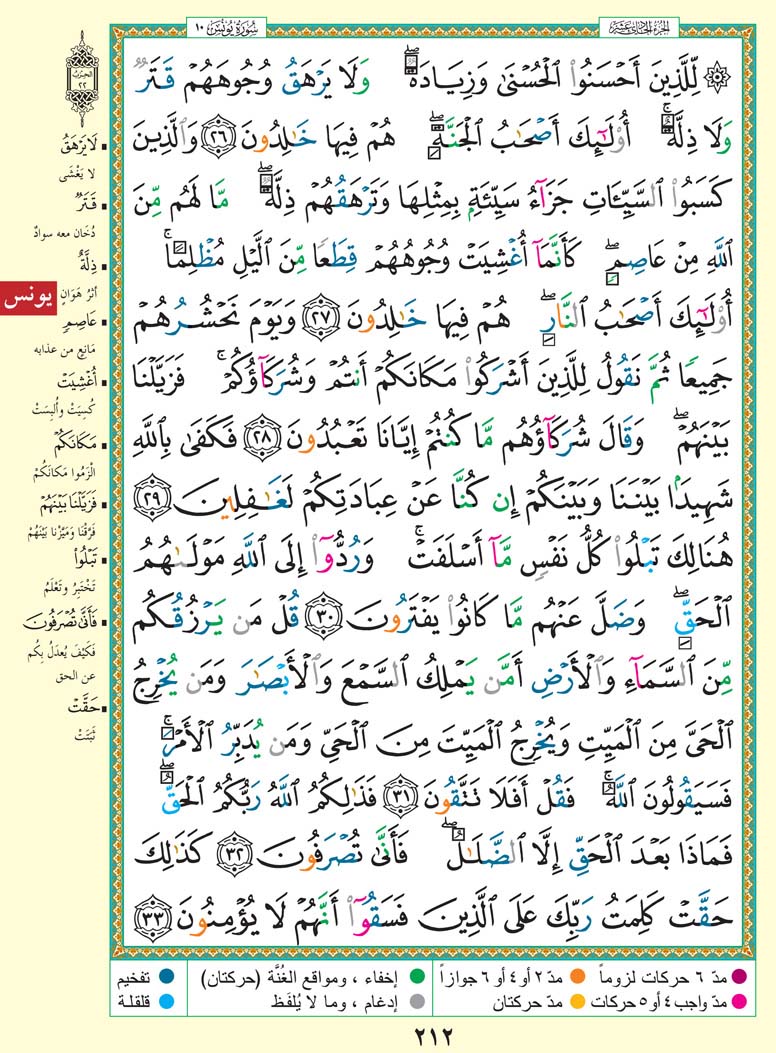 الجزء الحادي عشر
سورة يونس ١٠
۞ لِّلَّذِينَ أَحْسَنُوا۟ ٱلْحُسْنَىٰ وَزِيَادَةٌ ۖ وَلَا يَرْهَقُ وُجُوهَهُمْ قَتَرٌ
وَلَا ذِلَّةٌ ۚ أُو۟لَٰٓئِكَ أَصْحَٰبُ ٱلْجَنَّةِ ۖ هُمْ فِيهَا خَٰلِدُونَ ٢٦ وَٱلَّذِينَ
كَسَبُوا۟ ٱلسَّيِّـَٔاتِ جَزَآءُ سَيِّئَةٍۭ بِمِثْلِهَا وَتَرْهَقُهُمْ ذِلَّةٌ ۖ مَّا لَهُم مِّنَ
ٱللَّهِ مِنْ عَاصِمٍ ۖ كَأَنَّمَآ أُغْشِيَتْ وُجُوهُهُمْ قِطَعًا مِّنَ ٱلَّيْلِ مُظْلِمًا ۚ
أُو۟لَٰٓئِكَ أَصْحَٰبُ ٱلنَّارِ ۖ هُمْ فِيهَا خَٰلِدُونَ ٢٧ وَيَوْمَ نَحْشُرُهُمْ
جَمِيعًا ثُمَّ نَقُولُ لِلَّذِينَ أَشْرَكُوا۟ مَكَانَكُمْ أَنتُمْ وَشُرَكَآؤُكُمْ ۚ فَزَيَّلْنَا
بَيْنَهُمْ ۖ وَقَالَ شُرَكَآؤُهُم مَّا كُنتُمْ إِيَّانَا تَعْبُدُونَ ٢٨ فَكَفَىٰ بِٱللَّهِ
شَهِيدًۢا بَيْنَنَا وَبَيْنَكُمْ إِن كُنَّا عَنْ عِبَادَتِكُمْ لَغَٰفِلِينَ ٢٩
هُنَالِكَ تَبْلُوا۟ كُلُّ نَفْسٍ مَّآ أَسْلَفَتْ ۚ وَرُدُّوٓا۟ إِلَى ٱللَّهِ مَوْلَىٰهُمُ
ٱلْحَقِّ ۖ وَضَلَّ عَنْهُم مَّا كَانُوا۟ يَفْتَرُونَ ٣٠ قُلْ مَن يَرْزُقُكُم
مِّنَ ٱلسَّمَآءِ وَٱلْأَرْضِ أَمَّن يَمْلِكُ ٱلسَّمْعَ وَٱلْأَبْصَٰرَ وَمَن يُخْرِجُ
ٱلْحَىَّ مِنَ ٱلْمَيِّتِ وَيُخْرِجُ ٱلْمَيِّتَ مِنَ ٱلْحَىِّ وَمَن يُدَبِّرُ ٱلْأَمْرَ ۚ
فَسَيَقُولُونَ ٱللَّهُ ۚ فَقُلْ أَفَلَا تَتَّقُونَ ٣١ فَذَٰلِكُمُ ٱللَّهُ رَبُّكُمُ ٱلْحَقُّ ۖ
فَمَاذَا بَعْدَ ٱلْحَقِّ إِلَّا ٱلضَّلَٰلُ ۖ فَأَنَّىٰ تُصْرَفُونَ ٣٢ كَذَٰلِكَ
حَقَّتْ كَلِمَتُ رَبِّكَ عَلَى ٱلَّذِينَ فَسَقُوٓا۟ أَنَّهُمْ لَا يُؤْمِنُونَ ٣٣
الحزب
٢٢
لَا يَرْهَقُ
لا يَغْشَى
قَتَرٌ
دُخَان معه سوادٌ
ذِلَّةٌ
أثرُ هَوَانٍ
عَاصِمٍ
مَانِعٍ من عذابه
أُغْشِيَتْ
كُسِيَتْ وأُلبِسَتْ
مَكَانَكُمْ
الْزَمُوا مَكَانَكُمْ
فَزَيَّلْنَا بَيْنَهُمْ
فَرَّقْنا وَمَيَّزْنا بَيْنَهُمْ
تَبْلُوا۟
تَخْتَبِرُ وتَعْلَمُ
فَأَنَّىٰ تُصْرَفُونَ
فَكَيْفَ يُعدَلُ بِكُم
عن الحق
حَقَّتْ
ثَبَتَتْ
يونس
مدّ ٦ حركات لزوماً
مدّ ٢ أو ٤ أو ٦ جوازاً
إخفاء ، ومواقع الغُنَّة (حركتان)
تفخيم
مدّ واجب ٤ أو ٥ حركات
مدّ حركتان
إدغام ، وما لا يُلفَظ
قلقلة
٢١٢